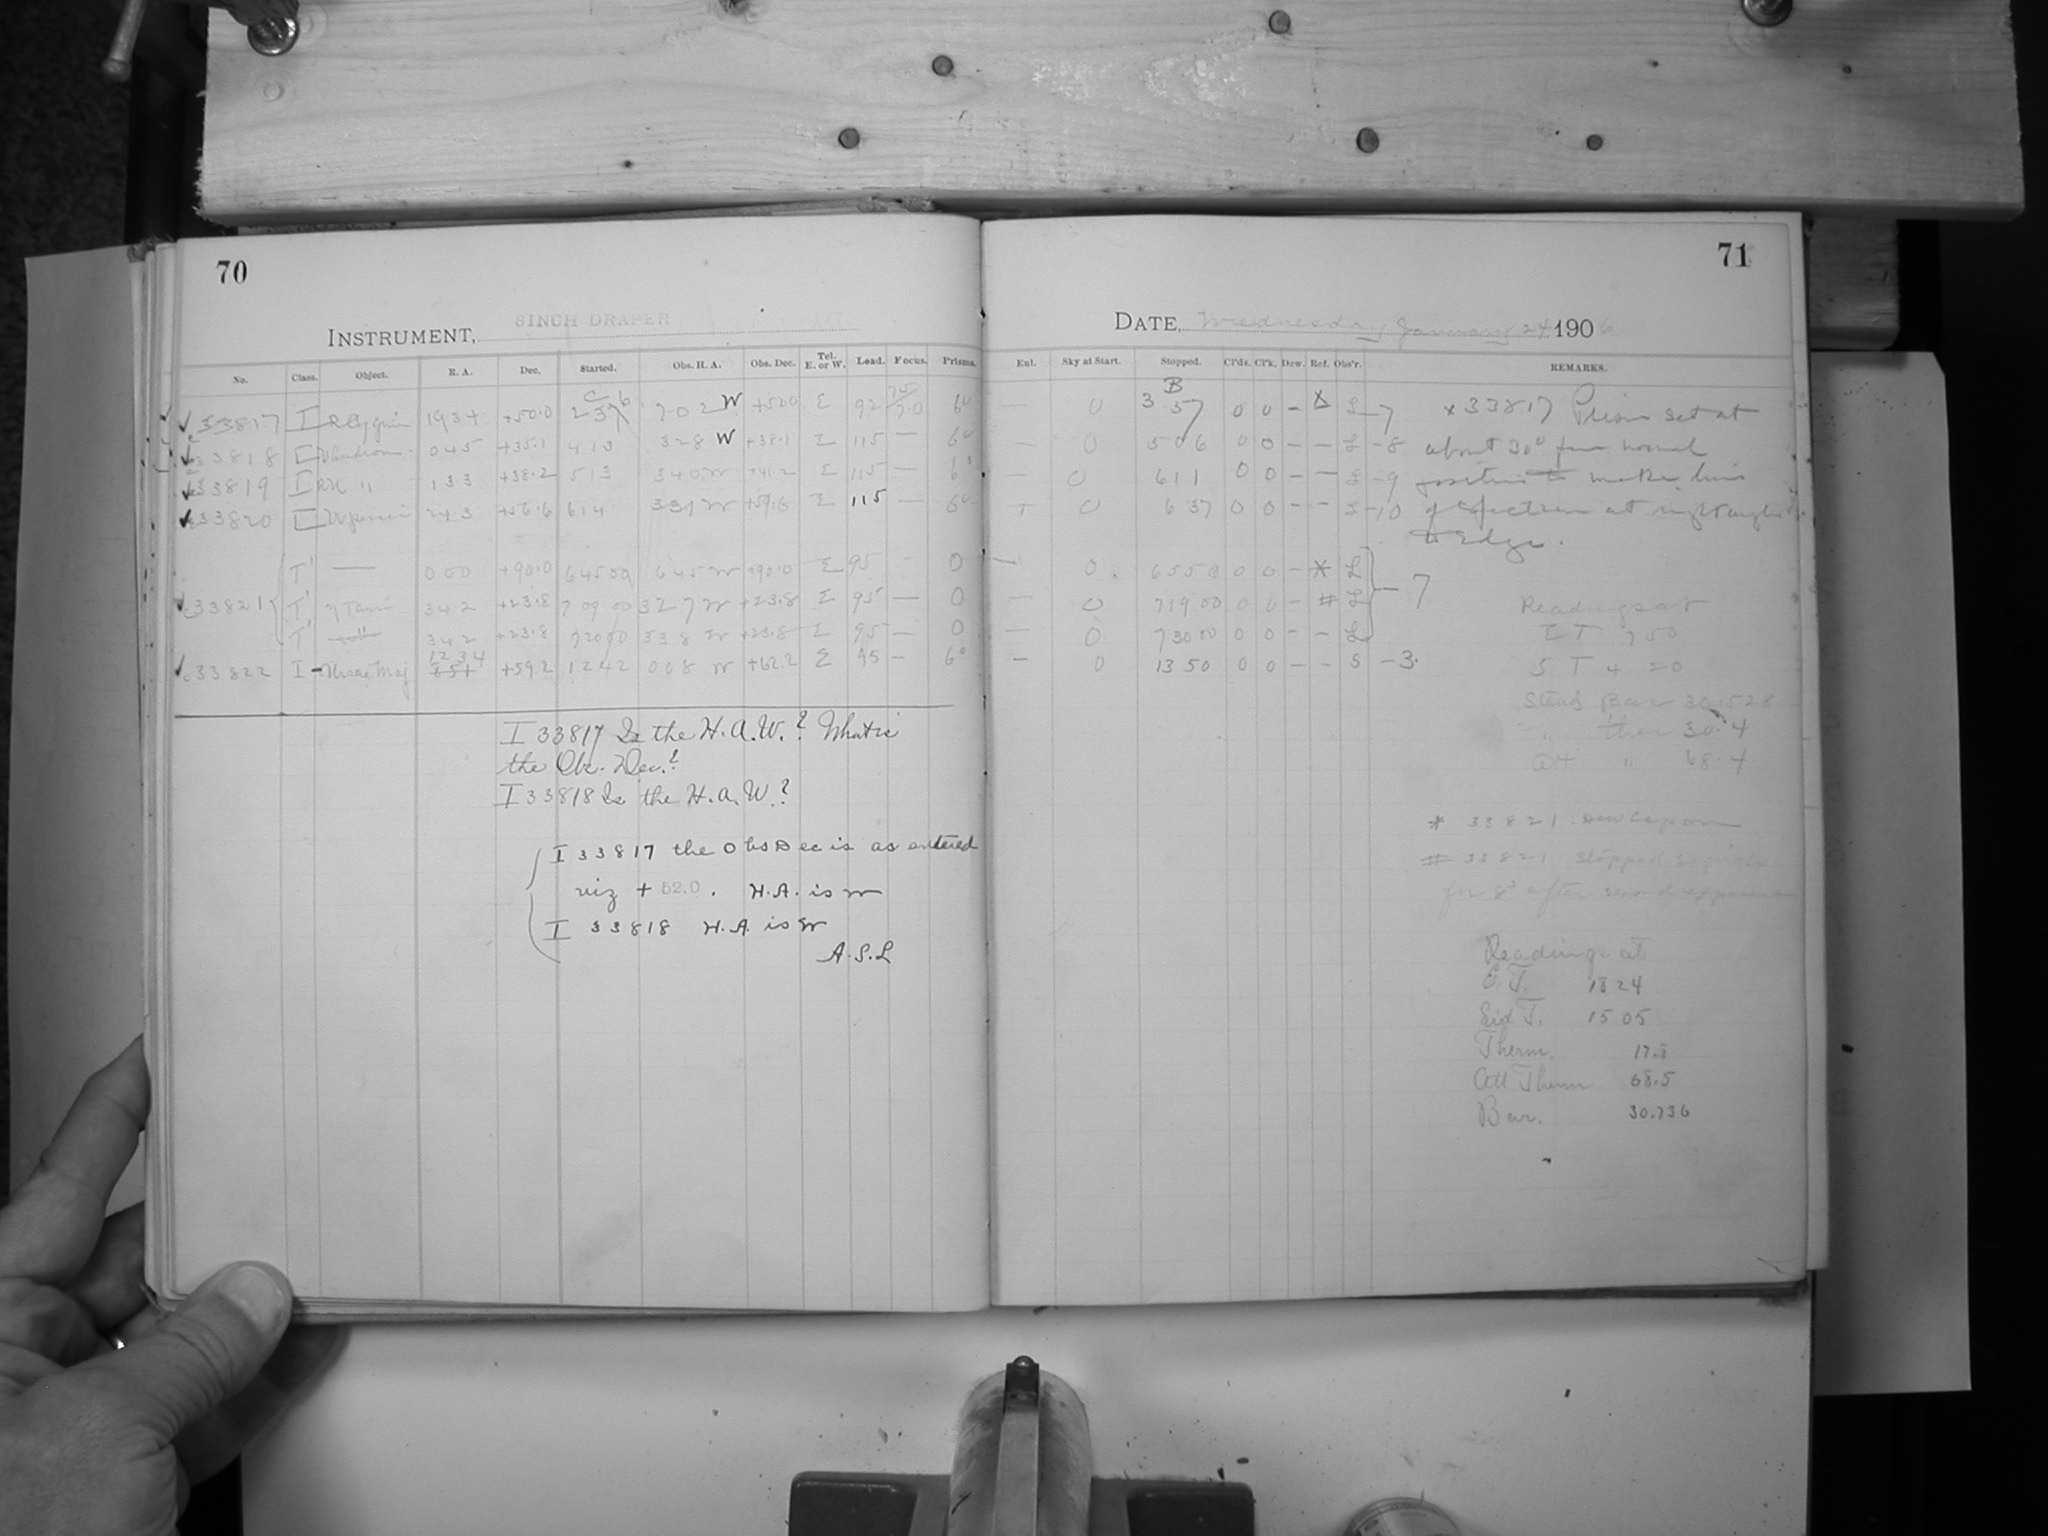 70
INSTRUMENT, 8INCH DRAPER
No. Class. Object. R. A. Dec. Started. Obs. H. A. Obs. Dec. Tel. E. or W. Lead. Focus. Prisms.
33817 I R Cygni 19 34 +50.0 7 02 W E 92 6°
33818 I 0 45 +35.1 4 13 3 28 W +38.1 E 115 — 6°
33819 I 1 33 +38.2 5 13 3 40 W +41.2 E 115 — 6°
33820 I 2 43 +56.6 6 14 3 31 W +59.6 E 115 — 6°
T' — 0 00 +90.0 6 45 00 6 45 W +90.0 E 95 - 0
33821 T' η Tauri 3 42 +23.8 7 09 00 3 27 W +23.8 E 95 — 0
T' 3 42 +23.8 7 20 00 3 38 W +23.8 E 95 — 0
33822 I Ursae Maj 12 34 +59.2 12 42 0 08 W +62.2 E 95 - 6°
I 33817 Is the H.A. W.? What is
the Obs. Dec.?
I 33818 Is the H.A. W.?
I 33817 the Obs Dec is as entered
viz + 52.0. H.A. is W
I 33818 H.A. is W
A.S.L
71
DATE, Wednesday January 24 1906
Enl. Sky at Start. Stopped. Cl'ds. Cl'k. Dew. Ref. Obs'r. REMARKS.
— 0 3 57 0 0 - x L -7 x 33817 Prism set at
— 0 5 06 0 0 - - L -8 about 30° from normal
— 0 6 11 0 0 - - L -9 position to make lines
0 6 37 0 0 - - L -10 of spectrum at right angles
to Edge.
— 0 6 55 0 0 - * L
— 0 7 19 00 0 0 - # L — 7
— 0 7 30 00 0 0 - - L
- 0 13 50 0 0 - - S -3.
Readings at
E T 7 50
S T 4 20
Stand Bar 30.528
" ther 30.4
Att " 68.4
* 33821.
# 33821 Stopped
for 8s after second exposure
Readings at
E.T. 18 24
Sid T. 15 05
Therm. 17.8
Att Therm 68.5
Bar. 30.736